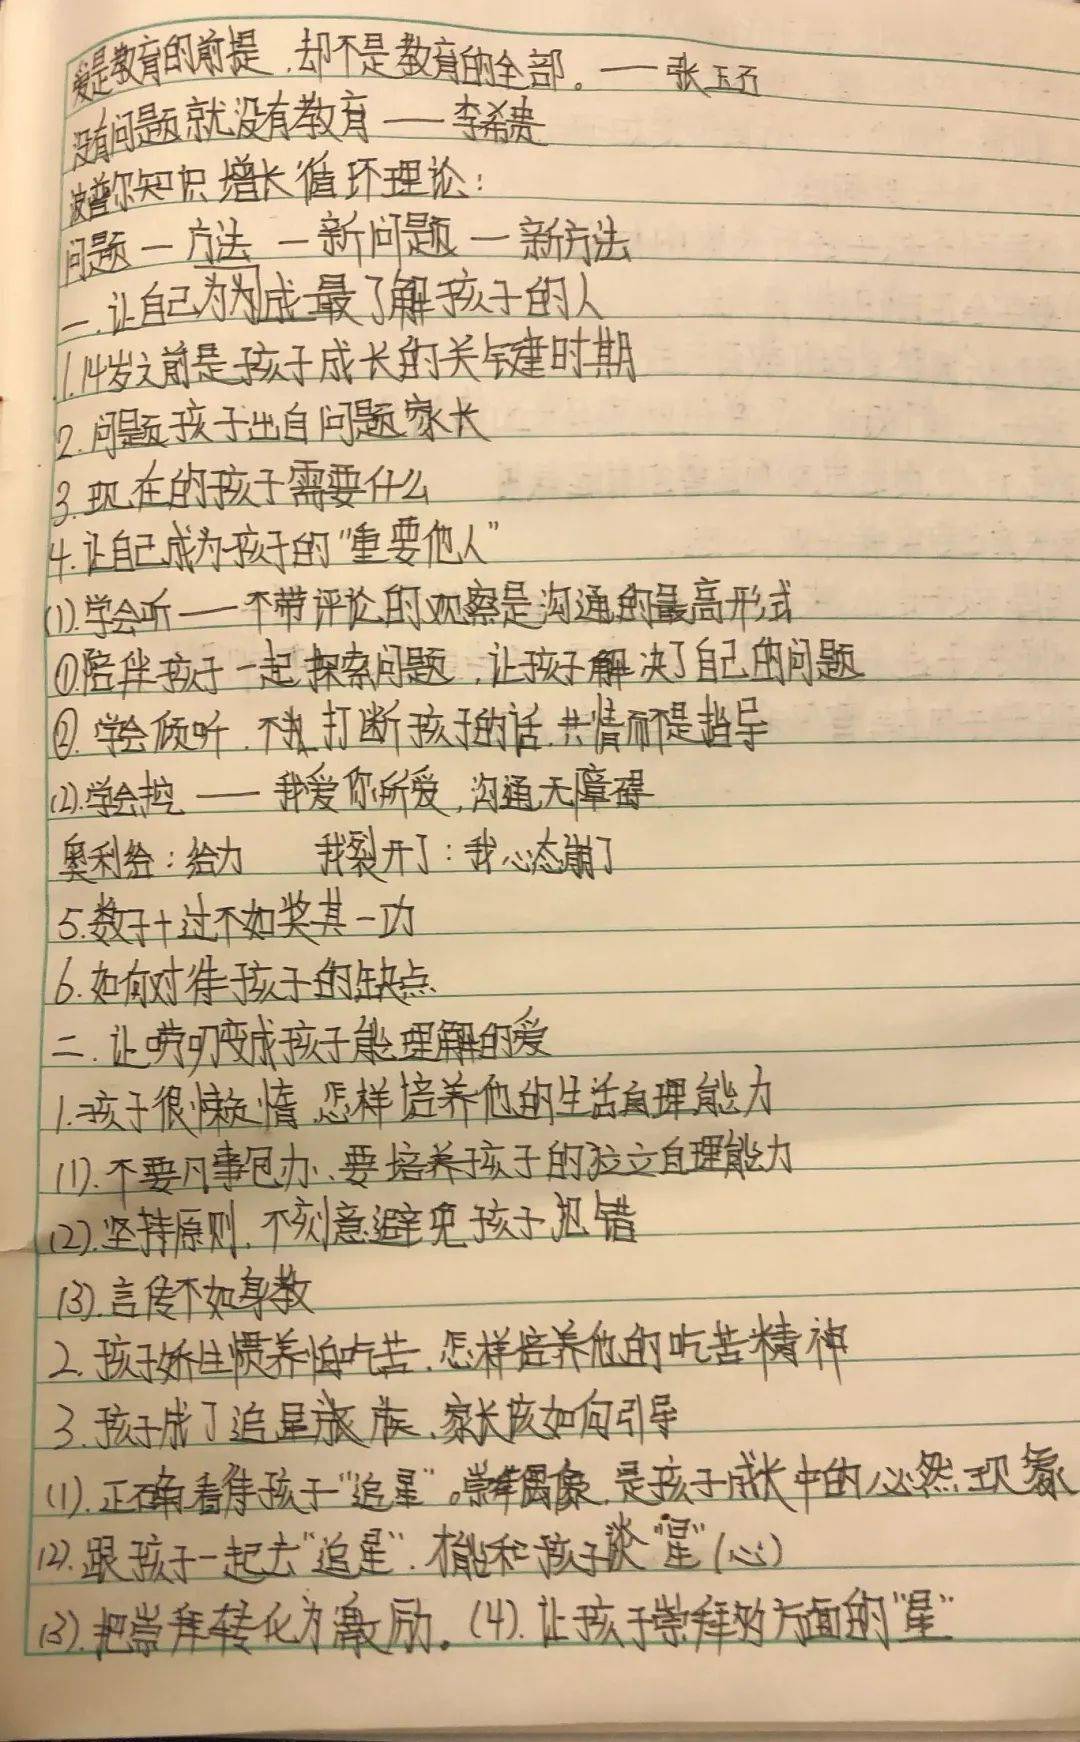 爱是教育的前提，却不是教育的全部。——张玉石
没有问题就没有教育——李希贵
波普尔知识增长循环理论：
问题—方法—新问题—新方法
一.让自己为成最了解孩子的人
1.14岁之前是孩子成长的关键时期
2.问题孩子出自问题家长
3.现在的孩子需要什么
4.让自己成为孩子的“重要他人”
(1).学会听——不带评论的观察是沟通的最高形式
①.陪伴孩子一起探索问题，让孩子解决了自己的问题
②.学会倾听.不打断孩子的话.共情而不是指导
(2).学会挖——我爱你所爱，沟通无障碍
奥利给：给力 我裂开了：我心态崩了
5.数子十过不如奖其一功
6.如何对待孩子的缺点
二.让唠叨变成孩子能理解的爱
1.孩子很懒惰.怎样培养他的生活自理能力
(1).不要凡事包办、要培养孩子的独立自理能力
(2).坚持原则.不刻意避免孩子犯错
(3).言传不如身教
2.孩子娇生惯养怕吃苦.怎样培养他的吃苦精神
3.孩子成了追星族.家长该如何引导
(1).正确看待孩子“追星”。崇拜偶像.是孩子成长中的必然现象
(2).跟孩子一起去“追星”.才能和孩子谈“星”(心)
(3).把崇拜转化为激励。(4).让孩子崇拜方面的“星”